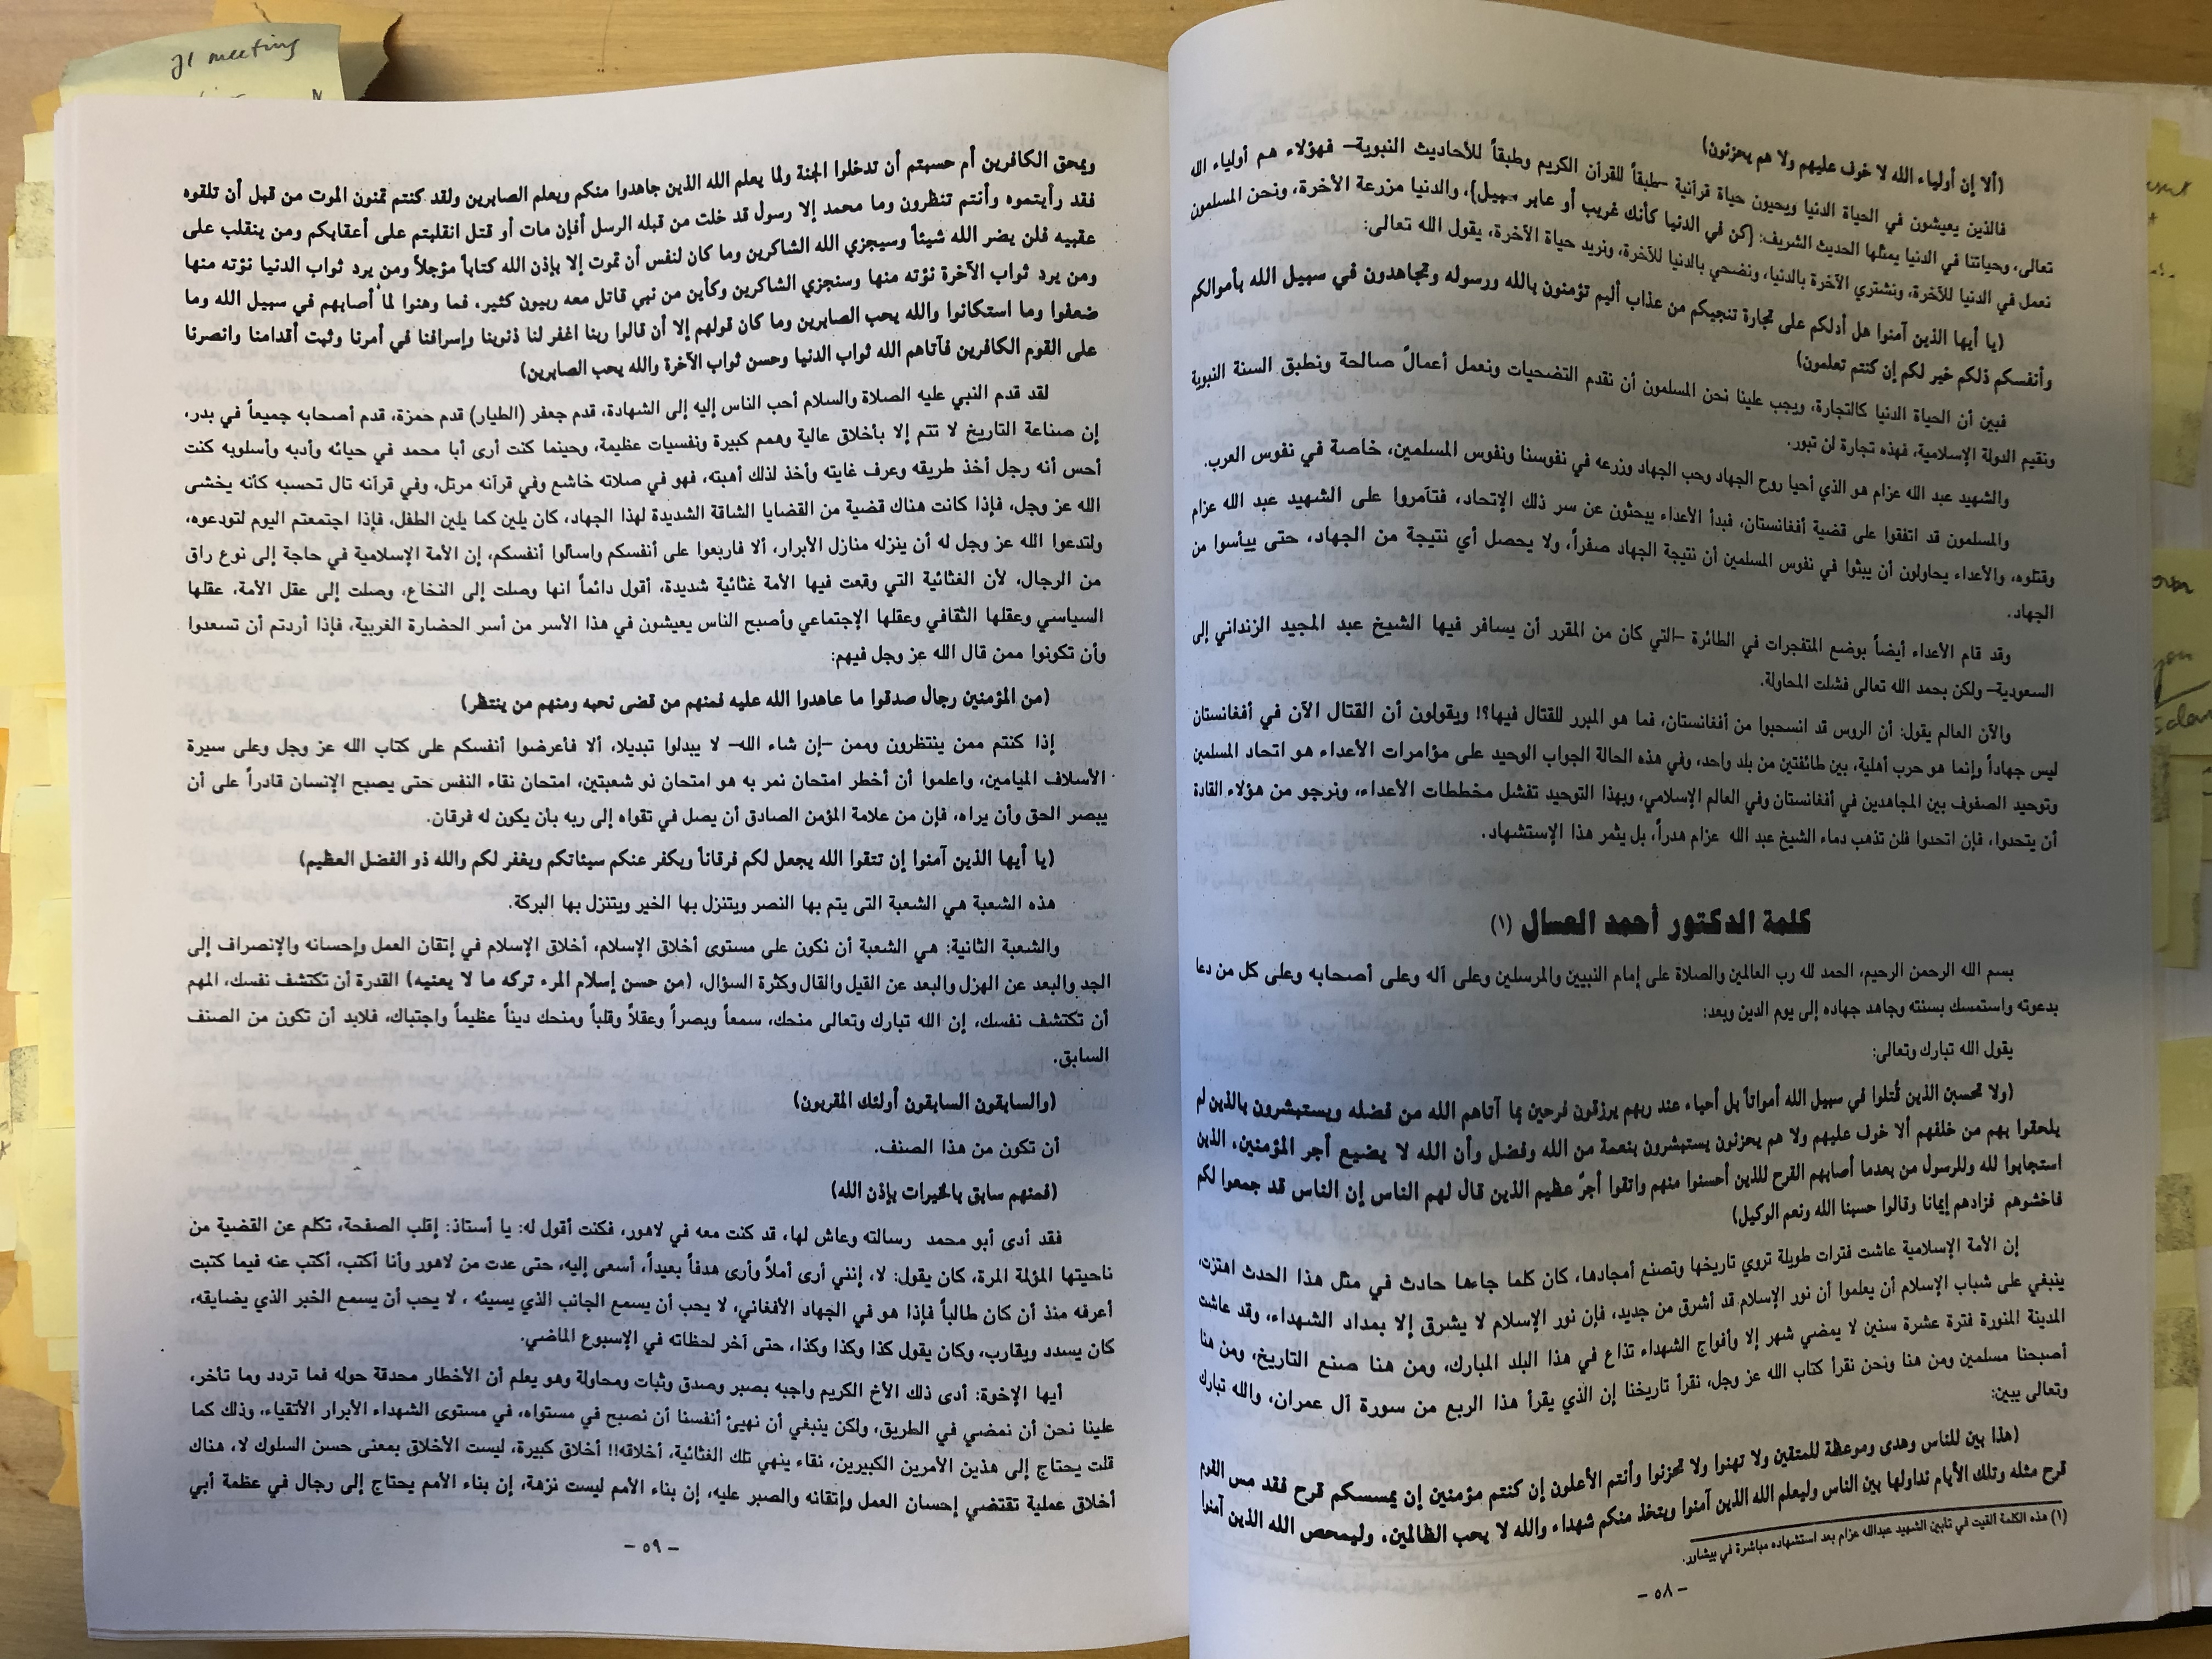 (ألا إن أولياء الله لا خوف عليهم ولا هم يحزنون)
فالذين يعيشون في الحياة الدنيا ويحيون حياة قرآنية –طبقاً للقرآن الكريم وطبقاً للأحاديث النبوية– فهؤلاء هم أولياء الله
تعالى، وحياتنا في الدنيا يمثلها الحديث الشريف: {كن في الدنيا كأنك غريب أو عابر سبيل}، والدنيا مزرعة الآخرة، ونحن المسلمون
نعمل في الدنيا للآخرة، ونشتري الآخرة بالدنيا، ونضحي بالدنيا للآخرة، ونريد حياة الآخرة، يقول الله تعالى:
(يا أيها الذين آمنوا هل أدلكم على تجارة تنجيكم من عذاب أليم تؤمنون بالله ورسوله وتجاهدون في سبيل الله بأموالكم
وأنفسكم ذلكم خير لكم إن كنتم تعلمون)
فبين أن الحياة الدنيا كالتجارة، ويجب علينا نحن المسلمون أن نقدم التضحيات ونعمل أعمالً صالحة ونطبق السنة النبوية
ونقيم الدولة الإسلامية، فهذه تجارة لن تبور.
والشهيد عبد الله عزام هو الذي أحيا روح الجهاد وحب الجهاد وزرعه في نفوسنا ونفوس المسلمين، خاصة في نفوس العرب.
والمسلمون قد اتفقوا على قضية أفغانستان، فبدأ الأعداء يبحثون عن سر ذلك الإتحاد، فتآمروا على الشهيد عبد الله عزام
وقتلوه، والأعداء يحاولون أن يبثوا في نفوس المسلمين أن نتيجة الجهاد صفراً، ولا يحصل أي نتيجة من الجهاد، حتى ييأسوا من
الجهاد.
وقد قام الأعداء أيضاً بوضع المتفجرات في الطائرة –التي كان من المقرر أن يسافر فيها الشيخ عبد المجيد الزنداني إلى
السعودية– ولكن بحمد الله تعالى فشلت المحاولة.
والآن العالم يقول: أن الروس قد انسحبوا من أفغانستان، فما هو المبرر للقتال فيها؟! ويقولون أن القتال الآن في أفغانستان
ليس جهاداً وإنما هو حرب أهلية، بين طائفتين من بلد واحد، وفي هذه الحالة الجواب الوحيد على مؤامرات الأعداء هو اتحاد المسلمين
وتوحيد الصفوف بين المجاهدين في أفغانستان وفي العالم الإسلامي، وبهذا التوحيد تفشل مخططات الأعداء، ونرجو من هؤلاء القادة
أن يتحدوا، فإن اتحدوا فلن تذهب دماء الشيخ عبد الله عزام هدراً، بل يثمر هذا الإستشهاد.
كلمة الدكتور أحمد العسال (١)
بسم الله الرحمن الرحيم، الحمد لله رب العالمين والصلاة على إمام النبيين والمرسلين وعلى آله وعلى أصحابه وعلى كل من دعا
بدعوته واستمسك بسنته وجاهد جهاده إلى يوم الدين وبعد:
يقول الله تبارك وتعالى:
(ولا تحسبن الذين قُتلوا في سبيل الله أمواتاً بل أحياء عند ربهم يرزقون فرحين بما آتاهم الله من فضله ويستبشرون بالذين لم
يلحقوا بهم من خلفهم ألا خوف عليهم ولا هم يحزنون يستبشرون بنعمة من الله وفضل وأن الله لا يضيع أجر المؤمنين، الذين
استجابوا لله وللرسول من بعدما أصابهم القرح للذين أحسنوا منهم واتقوا أجرٌ عظيم الذين قال لهم الناس إن الناس قد جمعوا لكم
فاخشوهم فزادهم إيمانا وقالوا حسبنا الله ونعم الوكيل)
إن الأمة الإسلامية عاشت فترات طويلة تروي تاريخها وتصنع أمجادها، كان كلما جاءها حادث في مثل هذا الحدث اهتزت،
ينبغي على شباب الإسلام أن يعلموا أن نور الإسلام قد أشرق من جديد، فإن نور الإسلام لا يشرق إلا بمداد الشهداء، وقد عاشت
المدينة المنورة فترة عشرة سنين لا يمضي شهر إلا وأفواج الشهداء تذاع في هذا البلد المبارك، ومن هنا صنع التاريخ، ومن هنا
أصبحنا مسلمين ومن هنا ونحن نقرأ كتاب الله عز وجل، نقرأ تاريخنا إن الذي يقرأ هذا الربع من سورة آل عمران، والله تبارك
وتعالى يبين:
(هذا بين للناس وهدى وموعظة للمتقين ولا تهنوا ولا تحزنوا وأنتم الأعلون إن كنتم مؤمنين إن يمسسكم قرح فقد مس القوم
قرح مثله وتلك الأيام نداولها بين الناس وليعلم الله الذين آمنوا ويتخذ منكم شهداء والله لا يحب الظالمين، وليمحص الله الذين آمنوا
(١) هذه الكلمة القيت في تابين الشهيد عبدالله عزام بعد استشهاده مباشرة في بيشاور.
– ٥٨ –
ويمحق الكافرين أم حسبتم أن تدخلوا الجنة ولما يعلم الله الذين جاهدوا منكم ويعلم الصابرين ولقد كنتم تمنون الموت من قبل أن تلقوه
فقد رأيتموه وأنتم تنظرون وما محمد إلا رسول قد خلت من قبله الرسل أفإن مات أو قتل انقلبتم على أعقابكم ومن ينقلب على
عقبيه فلن يضر الله شيئاً وسيجزي الله الشاكرين وما كان لنفس أن تموت إلا بإذن الله كتاباً مؤجلاً ومن يرد ثواب الدنيا نؤته منها
ومن يرد ثواب الآخرة نؤته منها وسنجزي الشاكرين وكأين من نبي قاتل معه ربيون كثير، فما وهنوا لما أصابهم في سبيل الله وما
ضعفوا وما استكانوا والله يحب الصابرين وما كان قولهم إلا أن قالوا ربنا اغفر لنا ذنوبنا وإسرافنا في أمرنا وثبت أقدامنا وانصرنا
على القوم الكافرين فآتاهم الله ثواب الدنيا وحسن ثواب الآخرة والله يحب الصابرين)
لقد قدم النبي عليه الصلاة والسلام أحب الناس إليه إلى الشهادة، قدم جعفر (الطيار) قدم حمزة، قدم أصحابه جميعاً في بدر،
إن صناعة التاريخ لا تتم إلا بأخلاق عالية وهمم كبيرة ونفسيات عظيمة، وحينما كنت أرى أبا محمد في حيائه وأدبه وأسلوبه كنت
أحس أنه رجل أخذ طريقه وعرف غايته وأخذ لذلك أهبته، فهو في صلاته خاشع وفي قرآنه مرتل، وفي قرآنه تال تحسبه كأنه يخشى
الله عز وجل، فإذا كانت هناك قضية من القضايا الشاقة الشديدة لهذا الجهاد، كان يلين كما يلين الطفل، فإذا اجتمعتم اليوم لتودعوه،
ولتدعوا الله عز وجل له أن ينزله منازل الأبرار، ألا فاربعوا على أنفسكم واسألوا أنفسكم، إن الأمة الإسلامية في حاجة إلى نوع راق
من الرجال، لأن الغثائية التي وقعت فيها الأمة غثائية شديدة، أقول دائماً انها وصلت إلى النخاع، وصلت إلى عقل الأمة، عقلها
السياسي وعقلها الثقافي وعقلها الإجتماعي وأصبح الناس يعيشون في هذا الأسر من أسر الحضارة الغربية، فإذا أردتم أن تسعدوا
وأن تكونوا ممن قال الله عز وجل فيهم:
(من المؤمنين رجال صدقوا ما عاهدوا الله عليه فمنهم من قضى نحبه ومنهم من ينتظر)
إذا كنتم ممن ينتظرون وممن –إن شاء الله– لا يبدلوا تبديلا، ألا فأعرضوا أنفسكم على كتاب الله عز وجل وعلى سيرة
الأسلاف الميامين، واعلموا أن أخطر امتحان نمر به هو امتحان ذو شعبتين، امتحان نقاء النفس حتى يصبح الإنسان قادراً على أن
يبصر الحق وأن يراه، فإن من علامة المؤمن الصادق أن يصل في تقواه إلى ربه بأن يكون له فرقان.
(يا أيها الذين آمنوا إن تتقوا الله يجعل لكم فرقاناً ويكفر عنكم سيئاتكم ويغفر لكم والله ذو الفضل العظيم)
هذه الشعبة هي الشعبة التى يتم بها النصر ويتنزل بها الخير ويتنزل بها البركة.
والشعبة الثانية: هي الشعبة أن نكون على مستوى أخلاق الإسلام، أخلاق الإسلام في إتقان العمل وإحسانه والإنصراف إلى
الجد والبعد عن الهزل والبعد عن القيل والقال وكثرة السؤال، (من حسن إسلام المرء تركه ما لا يعنيه) القدرة أن تكتشف نفسك، المهم
أن تكتشف نفسك، إن الله تبارك وتعالى منحك، سمعاً وبصراً وعقلاً وقلباً ومنحك ديناً عظيماً واجتباك، فلابد أن تكون من الصنف
السابق.
(والسابقون السابقون أولئك المقربون)
أن تكون من هذا الصنف.
(فمنهم سابق بالخيرات بإذن الله)
فقد أدى أبو محمد رسالته وعاش لها، قد كنت معه في لاهور، فكنت أقول له: يا أستاذ: إقلب الصفحة، تكلم عن القضية من
ناحيتها المؤلة المرة، كان يقول: لا، إنني أرى أملاً وأرى هدفاً بعيداً، أسعى إليه، حتى عدت من لاهور وأنا أكتب، أكتب عنه فيما كتبت
أعرفه منذ أن كان طالباً فإذا هو في الجهاد الأفغاني، لا يحب أن يسمع الجانب الذي يسيئه ، لا يحب أن يسمع الخبر الذي يضايقه،
كان يسدد ويقارب، وكان يقول كذا وكذا وكذا، حتى آخر لحظاته في الإسبوع الماضي.
أيها الإخوة: أدى ذلك الأخ الكريم واجبه بصبر وصدق وثبات ومحاولة وهو يعلم أن الأخطار محدقة حوله فما تردد وما تأخر،
علينا نحن أن نمضي في الطريق، ولكن ينبغي أن نهيئ أنفسنا أن نصبح في مستواه، في مستوى الشهداء الأبرار الأتقياء، وذلك كما
قلت يحتاج إلى هذين الأمرين الكبيرين، نقاء ينهي تلك الغثائية، أخلاقه!! أخلاق كبيرة، ليست الأخلاق بمعنى حسن السلوك لا، هناك
أخلاق عملية تقتضي إحسان العمل وإتقانه والصبر عليه، إن بناء الأمم ليست نزهة، إن بناء الأمم يحتاج إلى رجال في عظمة أبي
– ٥٩ –
meeting